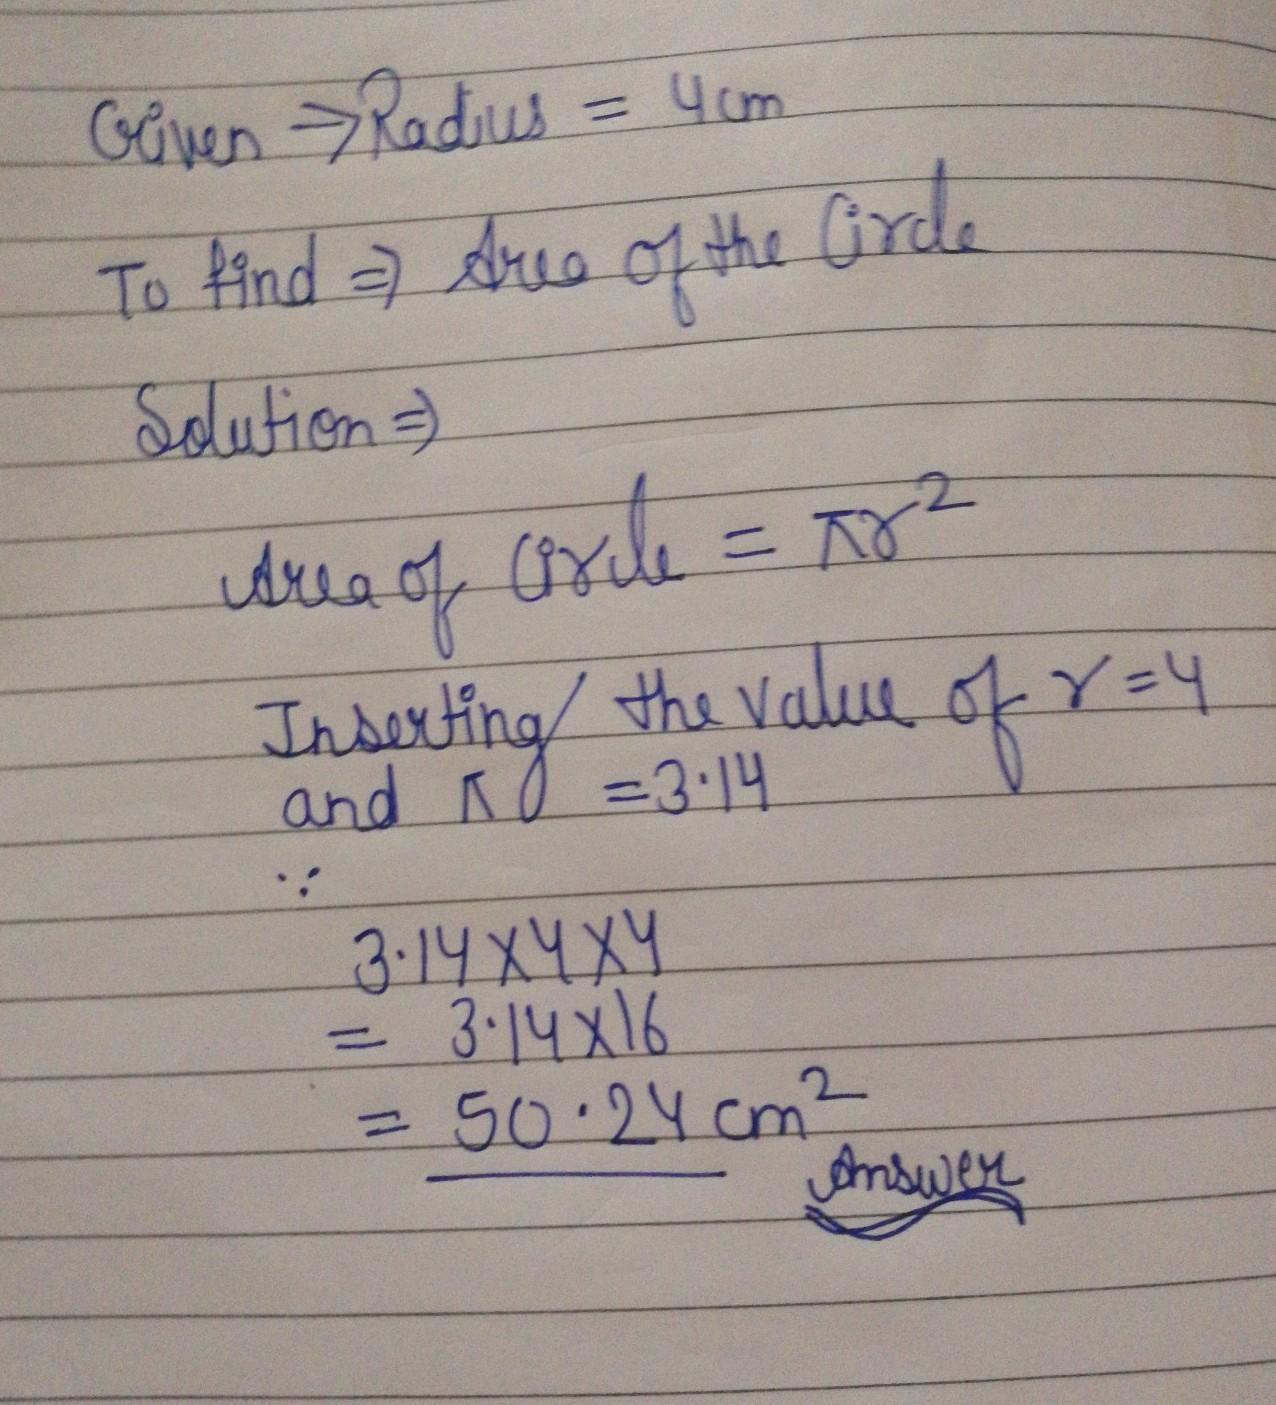 Given ⇒ Radius = 4cm
To find ⇒ Area of the Circle
Solution ⇒
Area of Circle = πr²
Inserting the value of r=4
and π =3.14
∵
3.14x4x4
= 3.14x16
= 50.24 cm²
Answer